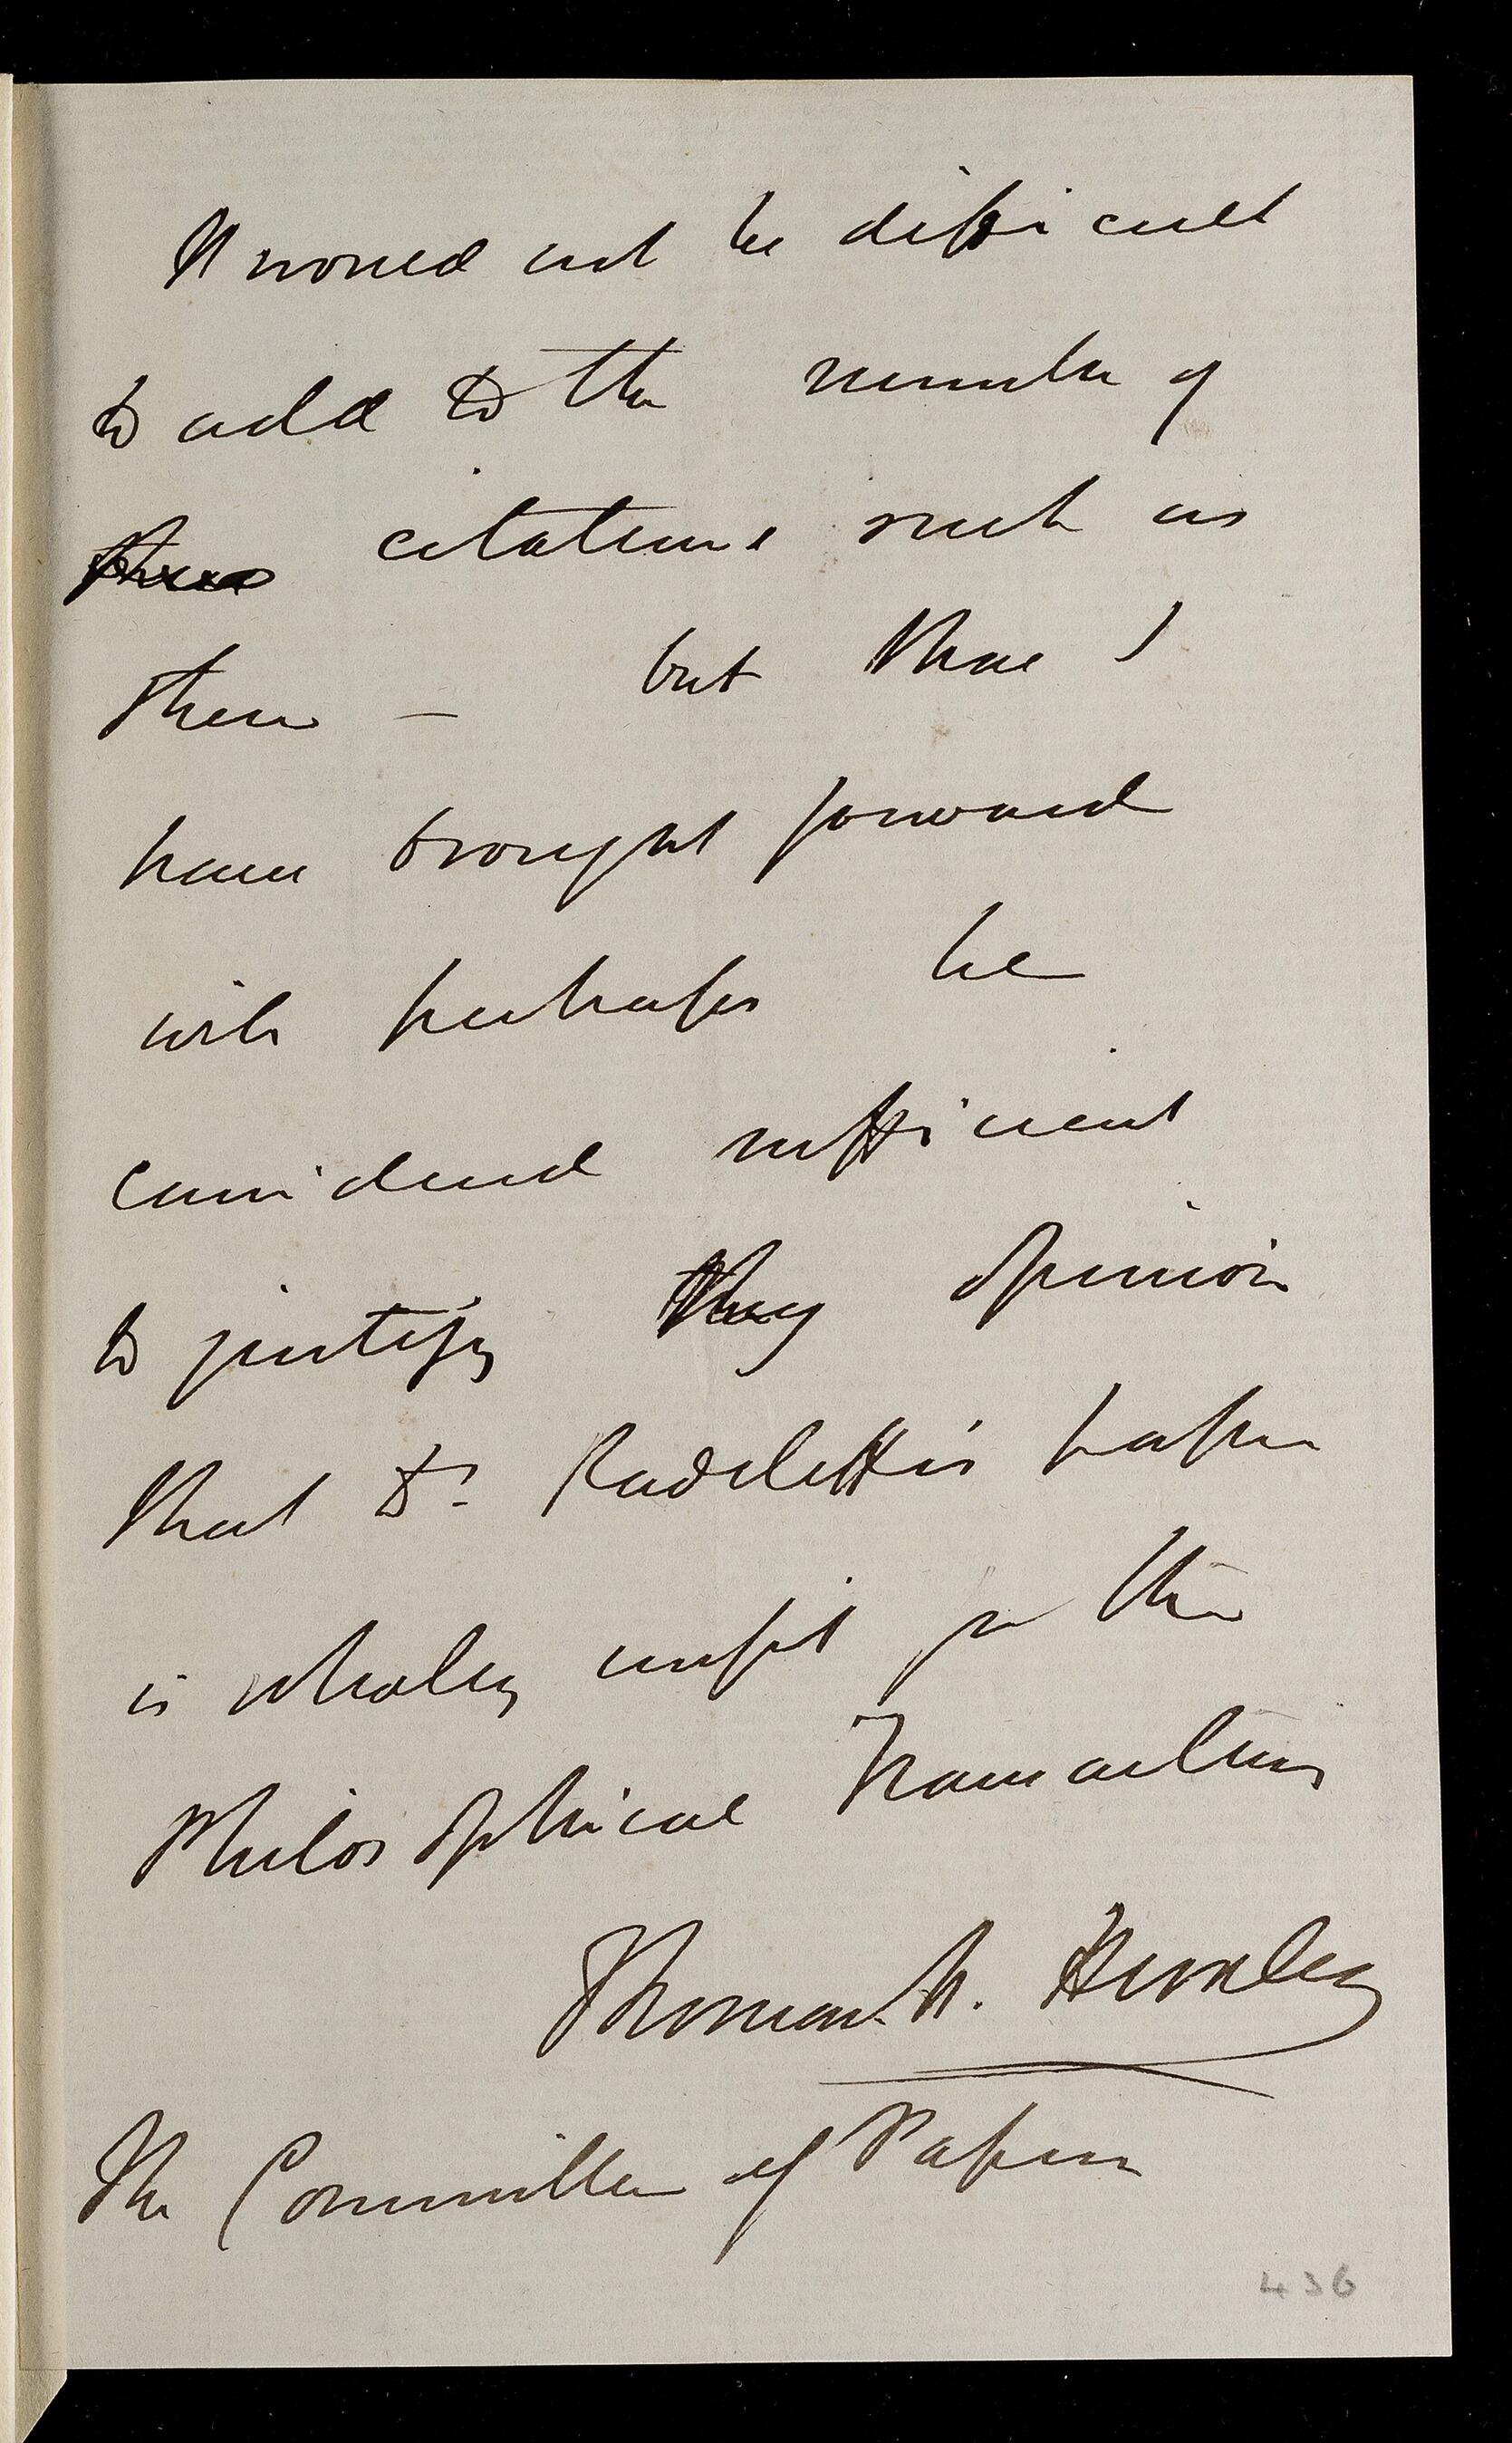 It would not be difficult
to add to the number of
these citations such as
these – but those I
have brought forward
will perhaps be
considered sufficient
to justify my opinion
that Dr. Radcliffe's paper
is wholly unfit for the
Philosophical Transactions
Thomas H. Huxley
The Committee of Papers
436